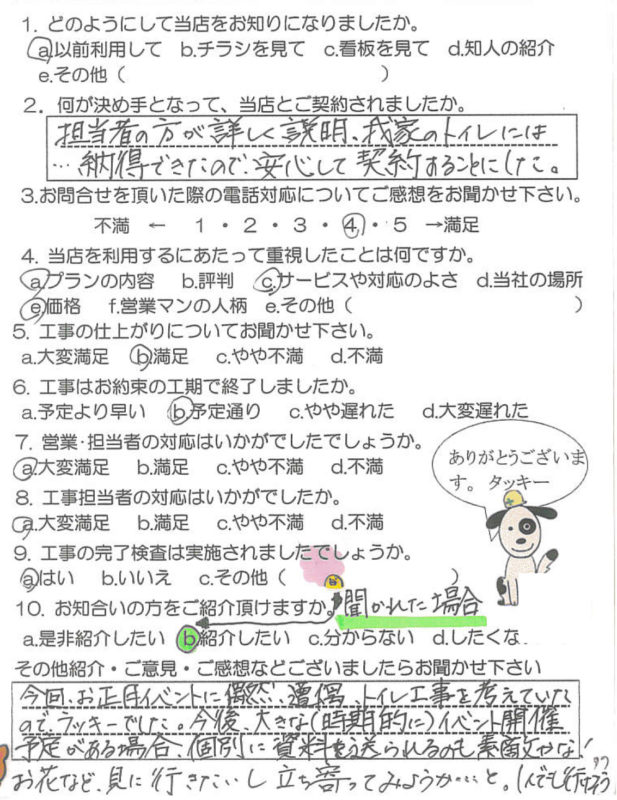 1. どのようにして当店をお知りになりましたか。
a.以前利用して b.チラシを見て c.看板を見て d.知人の紹介
e.その他（ ）
2. 何が決め手となって、当店とご契約されましたか。
担当者の方が詳しく説明、我家のトイレには
…納得できたので、安心して契約することにした。
3.お問合せを頂いた際の電話対応についてご感想をお聞かせ下さい。
不満 ← 1・2・3・4・5 →満足
4. 当店を利用するにあたって重視したことは何ですか。
a.プランの内容 b.評判 c.サービスや対応のよさ d.当社の場所
e.価格 f.営業マンの人柄 e.その他（ ）
5. 工事の仕上がりについてお聞かせ下さい。
a.大変満足 b.満足 c.やや不満 d.不満
6. 工事はお約束の工期で終了しましたか。
a.予定より早い b.予定通り c.やや遅れた d.大変遅れた
7. 営業・担当者の対応はいかがでしたでしょうか。
a.大変満足 b.満足 c.やや不満 d.不満
ありがとうございま
す。 タッキー
8. 工事担当者の対応はいかがでしたか。
a.大変満足 b.満足 c.やや不満 d.不満
9. 工事の完了検査は実施されましたでしょうか。
a.はい b.いいえ c.その他（ ）
10. お知合いの方をご紹介頂けますか。 聞かれた場合
a.是非紹介したい b.紹介したい c.分からない d.したくな
その他紹介・ご意見・ご感想などございましたらお聞かせ下さい
今回、お正月イベントに偶然、遭遇、トイレ工事を考えていた
ので、ラッキーでした。今後、大きな(時期的に)イベント開催
予定がある場合、個別に資料を送られるのも素敵かな！
お花など、見に行きたいし立ち寄ってみようか…と。